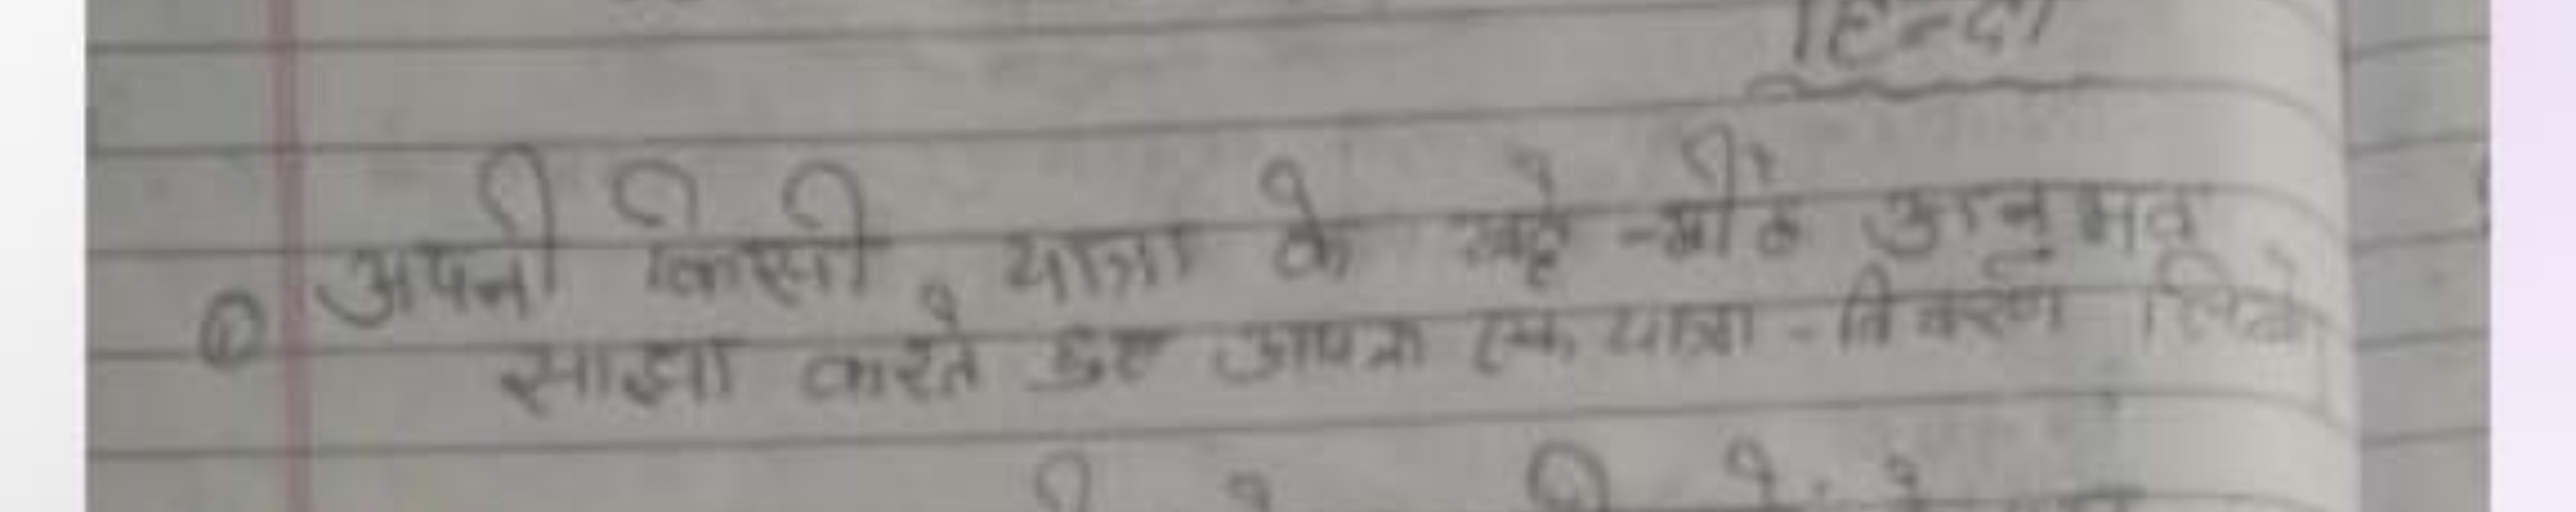 हिन्दी
① अपनी किसी यात्रा के खट्टे-मीठे अनुभव
साझा करते हुए अपना एक यात्रा-विवरण लिखो